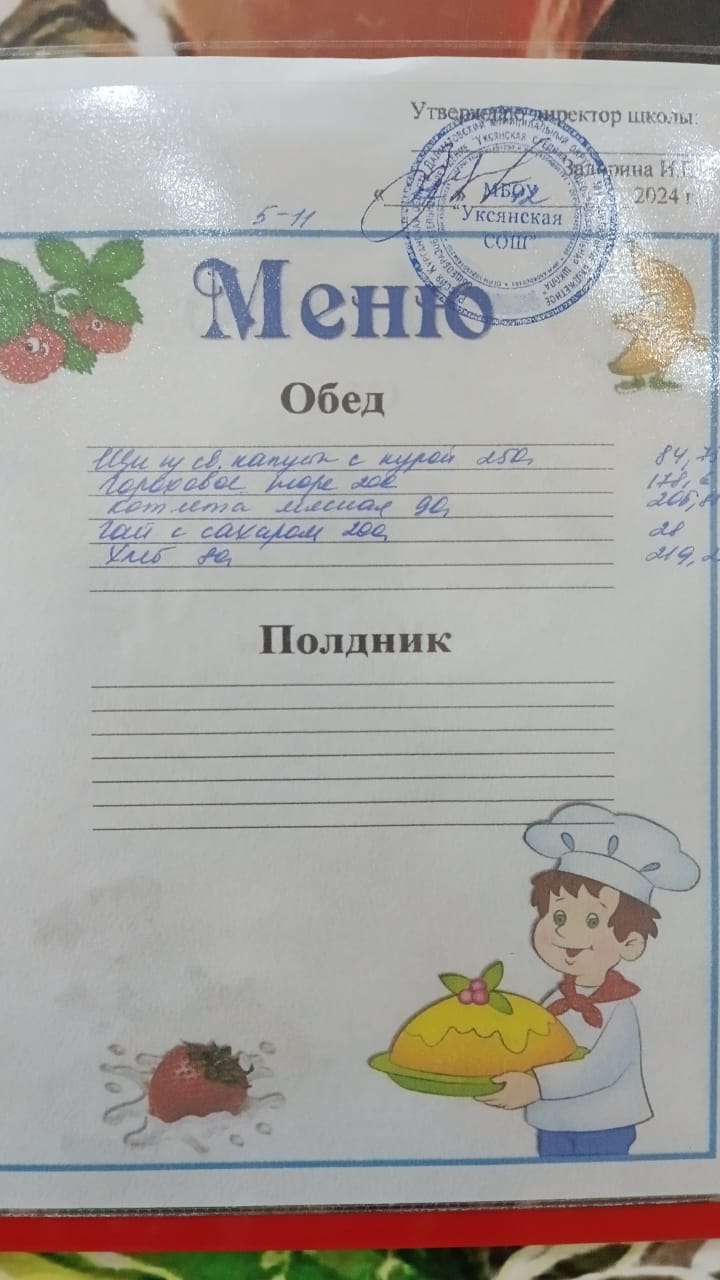 Утверждаю директор школы:
Задорина И.Е.
2024 г
МБОУ
"Уксянская
СОШ"
5-11
Меню
Обед
Щи из св. капусты с курой 250
84,7
Гороховое пюре 200
178,
Котлета мясная 90
206,8
Чай с сахаром 200
28
Хлеб 80
219,2
Полдник